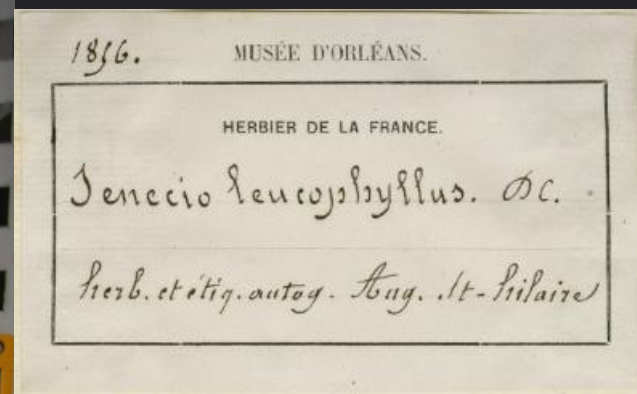 1856. MUSÉE D'ORLÉANS.
HERBIER DE LA FRANCE.
Senecio leucophyllus. DC.
herb. et étiq. autog. Aug. St-hilaire